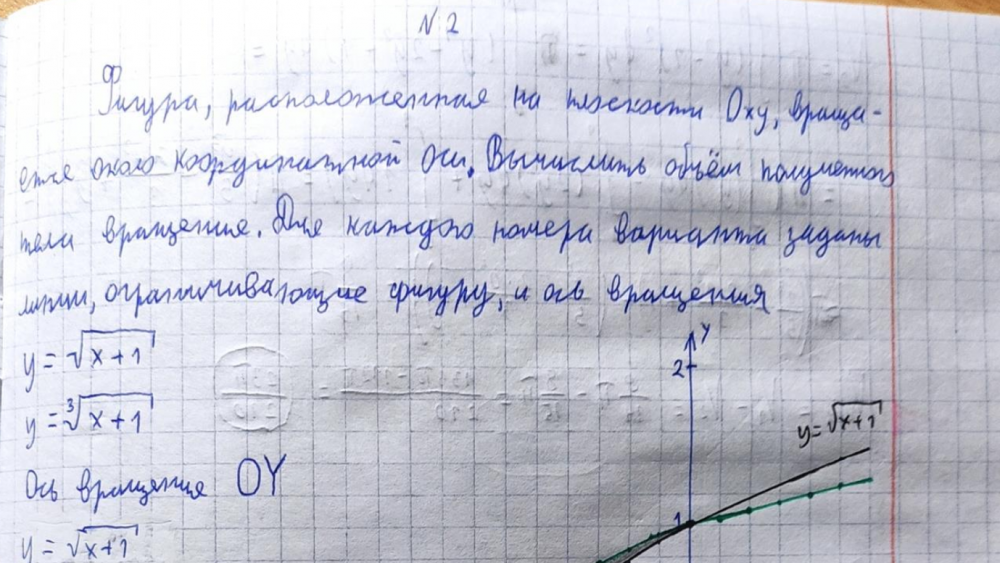 N 2
Фигура, расположенная на плоскости Oxy, враща-
ется около координатной оси. Вычислить объём полученного
тела вращения. Для каждого номера варианта заданы
линии, ограничивающие фигуру, и ось вращения
y = √(x + 1)
y = ∛(x + 1)
Ось вращения OY
y = √(x+1)
y
2
y = √(x+1)
1